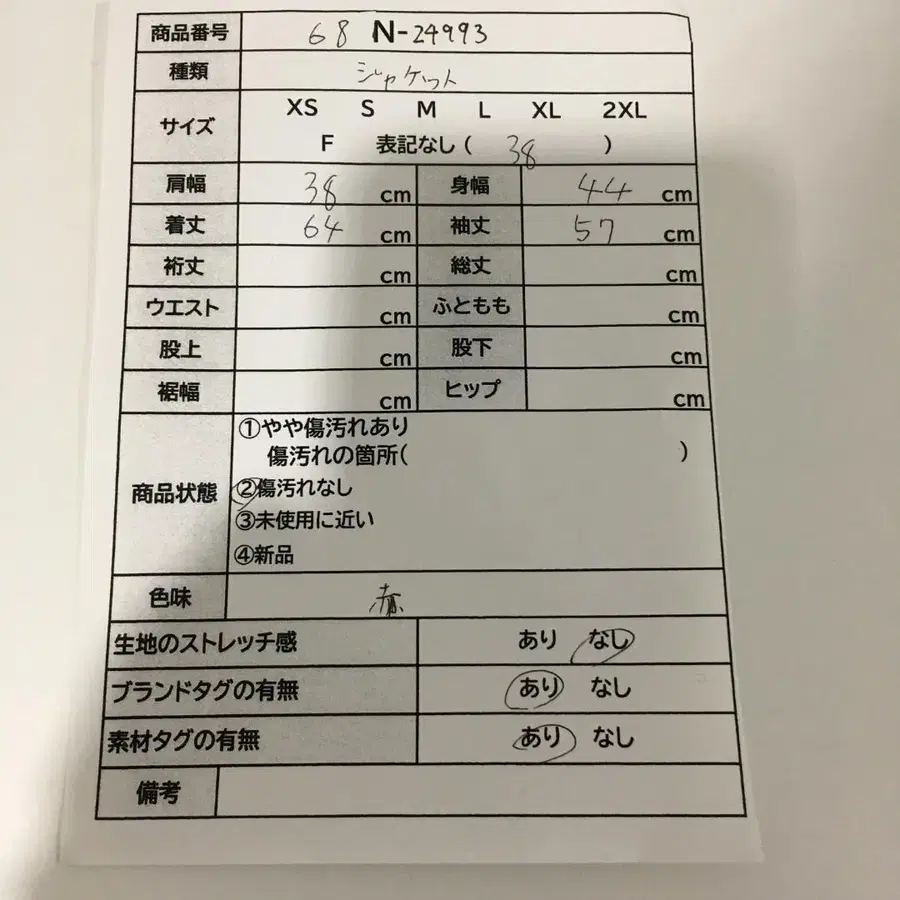 商品番号 68 N-24993
種類 ジャケット
サイズ XS S M L XL 2XL
F 表記なし( 38 )
肩幅 38 cm 身幅 44 cm
着丈 64 cm 袖丈 57 cm
裄丈 cm 総丈 cm
ウエスト cm ふともも cm
股上 cm 股下 cm
裾幅 cm ヒップ cm
商品状態 ①やや傷汚れあり
傷汚れの箇所( )
②傷汚れなし
③未使用に近い
④新品
色味 赤
生地のストレッチ感 あり なし
ブランドタグの有無 あり なし
素材タグの有無 あり なし
備考